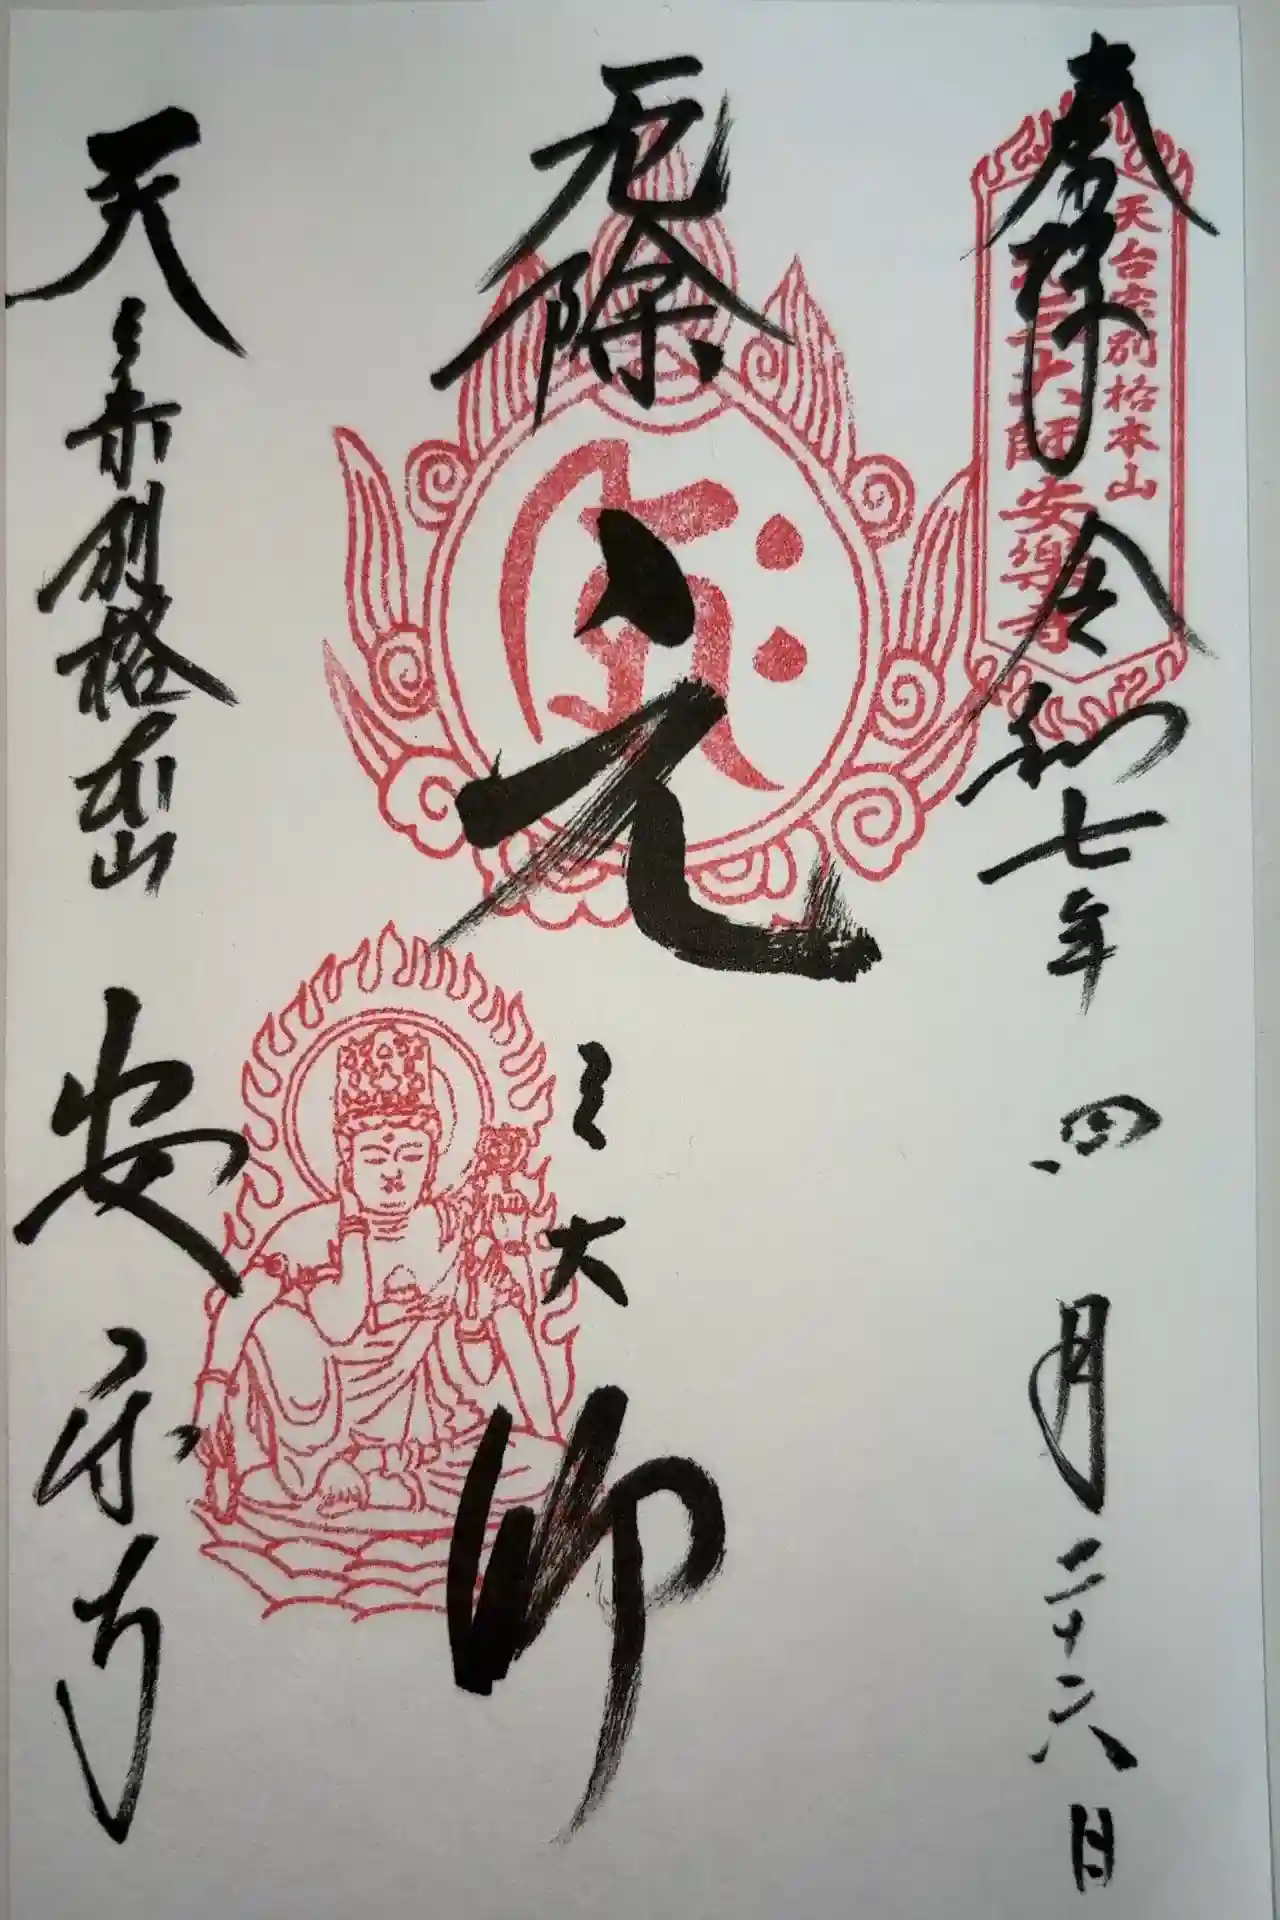 奉拝 令和七年 四月二十六日
天台宗別格本山
元三大師 安樂寺
厄除
元三大師
天台宗別格本山 安楽寺